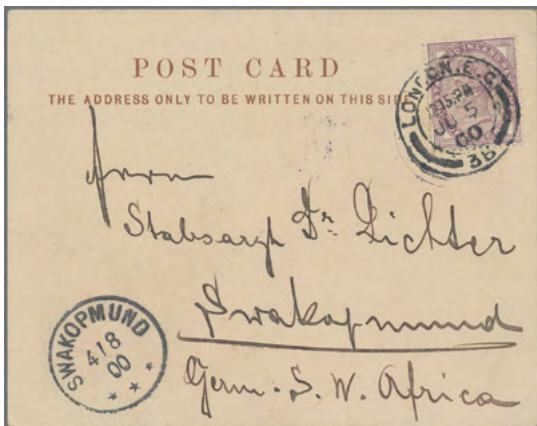 POST CARD
THE ADDRESS ONLY TO BE WRITTEN ON THIS SIDE
LONDON. E.C.
12.15. PM
JU 5
00
38
Herrn
Stabsarzt Dr. Lichter
Swakopmund
Germ. S. W. Africa
SWAKOPMUND
4 18
00